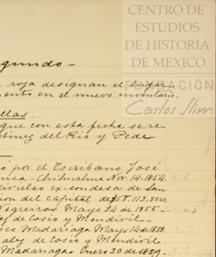 CENTRO DE
ESTUDIOS
DE HISTORIA
DE MEXICO
FUNDACIÓN
Carlos Slim
egundo.-
roja designan el lugar
mento en el nuevo inventario.
ellas.
que con esta fecha se re-
tinez del Rio y Pede
o por el Escribano José
nica-Chihuahua Nov. 14.1854.
Civiles ex-condesa de San
on del capital de $ 113.500
Negreiros Mayo 24 de 1855-
ez de Cosio y Mendivil
co Madariaga Mayo 14 de 1859.
alez de Cosio y Mendivil
Madariaga Enero 30 de 1859.